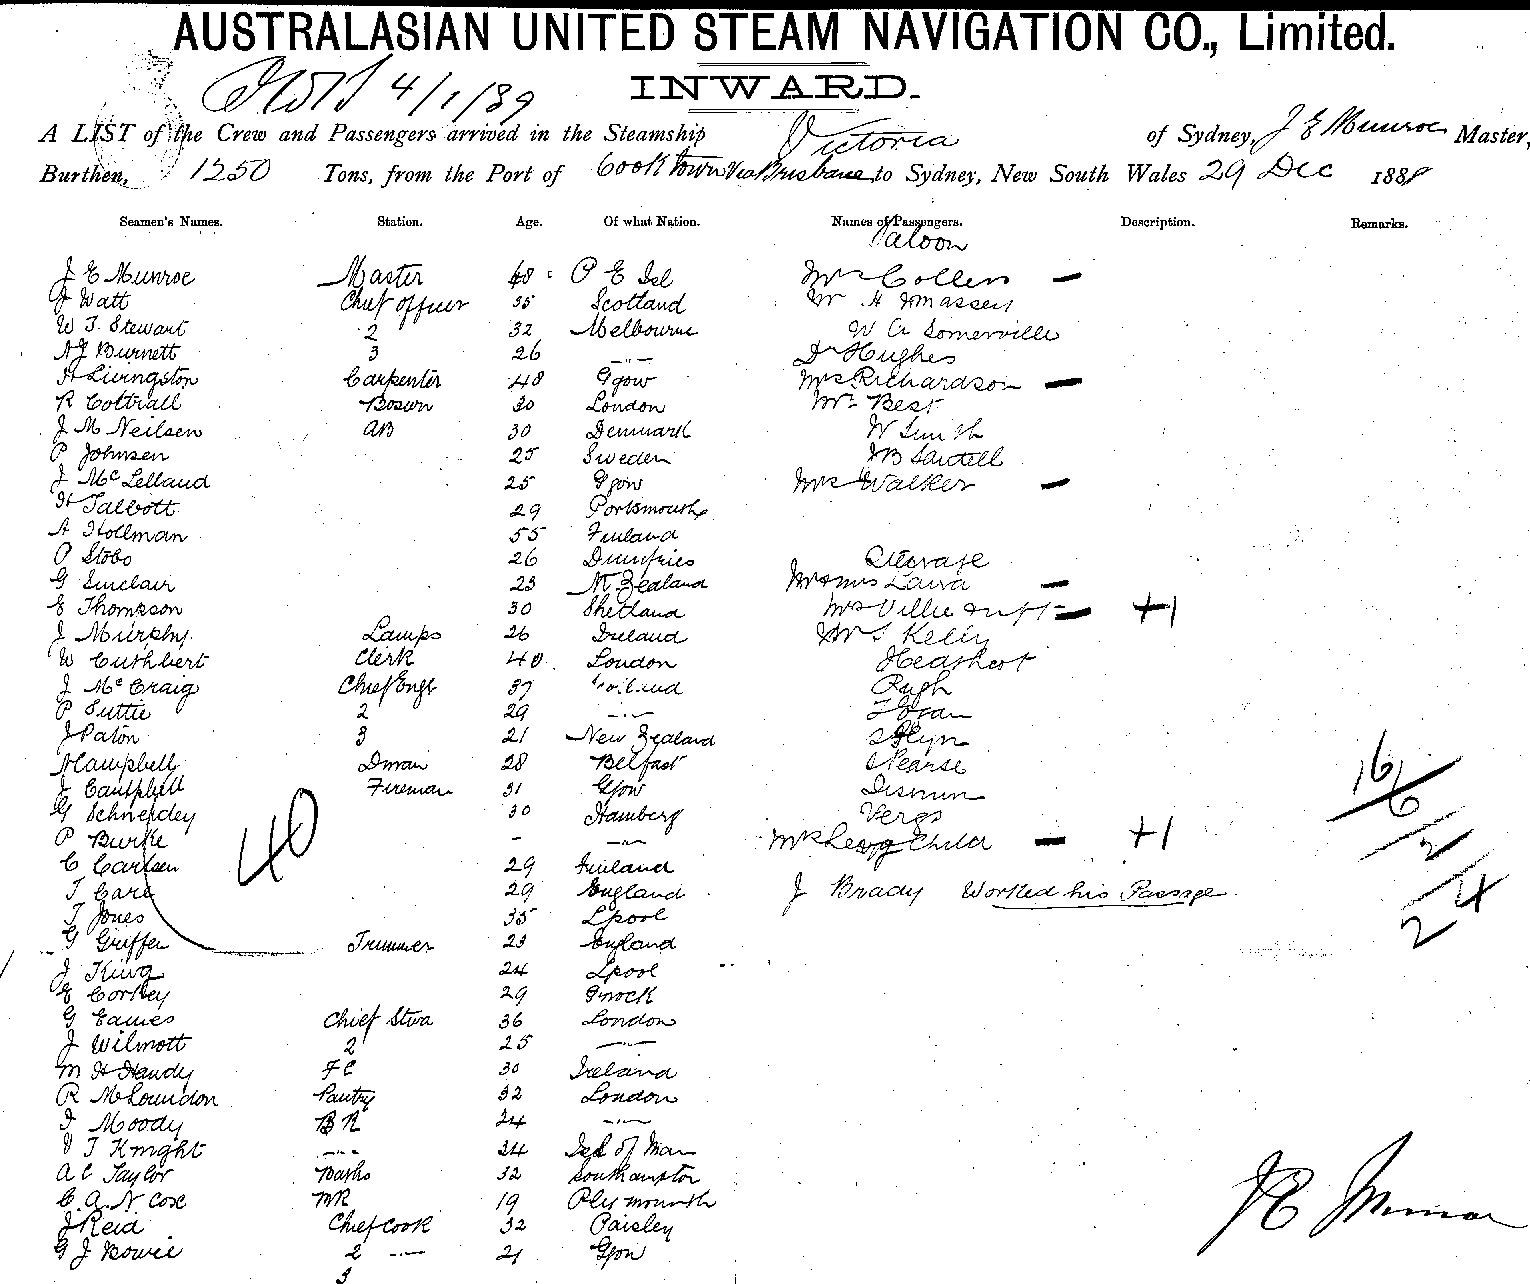 AUSTRALASIAN UNITED STEAM NAVIGATION CO., Limited.
4/1/89 INWARD.
A LIST of the Crew and Passengers arrived in the Steamship Victoria of Sydney, J E Munroe Master,
Burthen, 1250 Tons, from the Port of Cooktown via Brisbane to Sydney, New South Wales 29 Dec 1888
Seamen's Names. Station. Age. Of what Nation. Names of Passengers. Description. Remarks.
Saloon
J E Munroe Master 48 P E Isl Mrs Collers —
J Watt Chief officer 35 Scotland Mr H Massey
W T. Stewart 2 32 Melbourne W A Somerville
A J Burnett 3 26 —"— Dr Hughes
H Livingston Carpenter 48 Ggow Mrs Richardson —
R Cottrall Bosun 30 London Mr Best
J M Neilsen AB 30 Denmark W Smith
P Johnsen 25 Sweden
J McLelland 25 Ggow Mrs Walker —
H Talbott 29 Portsmouth
A Hollman 55 Finland
O Stobo 26 Dumfries Steerage
G Sinclair 23 N. Zealand Mr & Mrs Laura —
E Thompson 30 Shetland Mrs — +1
J Murphy Lamps 26 Ireland Mr T Kelly
W Cuthbert Clerk 40 London Heathcot
J McCraig Chief Engr 37 Pugh
P Suttie 2 29 —"—
J Paton 3 21 New Zealand
Campbell Dman 28 Belfast Pearse
J Campbell Fireman 31 Ggow
G Schnepdey 30 Hamberg
P Burke - —"— Mrs & Child — +1
C Carlsen 29 Finland
T Care 29 England J Brady Worked his Passage
T Jones 35 Lpool
G Griffen Trimmer 23 England
J King 24 Lpool
E Corkey 29 Gnock
G Eames Chief Stwd 36 London
J Wilmott 2 25 —"—
M H Handy FC 30 Ireland
R McLoundon Pantry 32 London
Moody BR 24 —"—
T Knight —"— 24 Isl of Man
A C Taylor Baths 32 Southampton
C. A. N Cox MR 19 Plymouth
J Reid Chief Cook 32 Paisley
G J Bowie 2 —"— 21 Ggow
3
40
16
6
2
24
J E Munroe